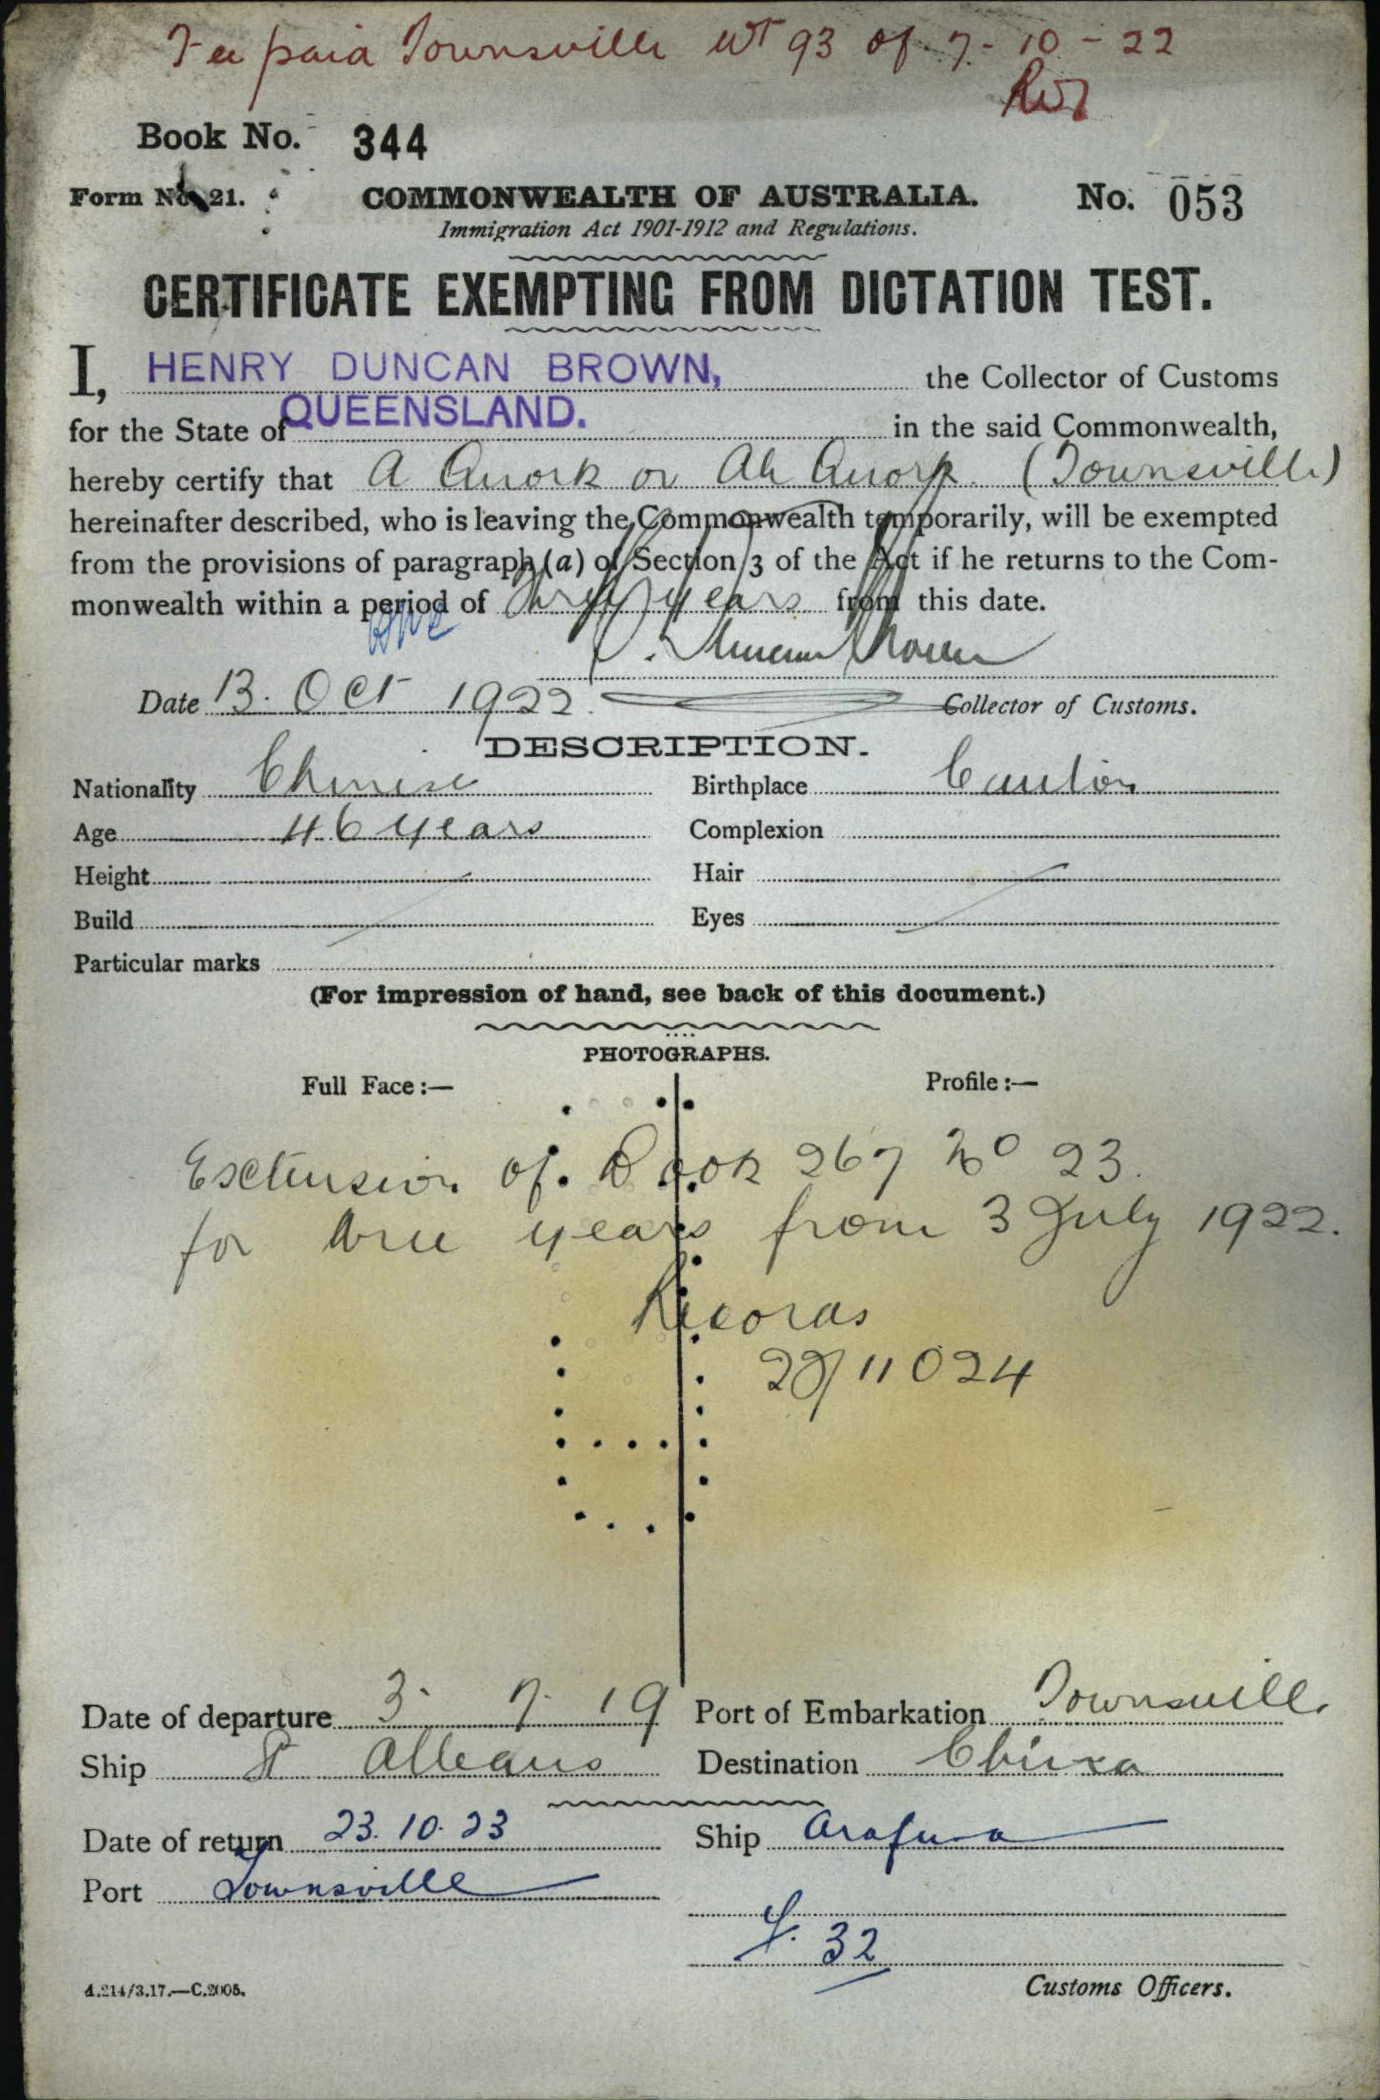 Fee paid Townsville WT 93 of 7-10-22
Book No. 344
Form No. 21.
COMMONWEALTH OF AUSTRALIA.
No. 053
Immigration Act 1901-1912 and Regulations.
CERTIFICATE EXEMPTING FROM DICTATION TEST.
I, HENRY DUNCAN BROWN, the Collector of Customs
for the State of QUEENSLAND. in the said Commonwealth,
hereby certify that A Quork or Ah Quork (Townsville)
hereinafter described, who is leaving the Commonwealth temporarily, will be exempted
from the provisions of paragraph (a) of Section 3 of the Act if he returns to the Com-
monwealth within a period of Three years from this date.
Date 13. Oct 1922. Collector of Customs.
DESCRIPTION.
Nationality Chinese Birthplace Canton
Age 46 years Complexion
Height Hair
Build Eyes
Particular marks
(For impression of hand, see back of this document.)
PHOTOGRAPHS.
Full Face:— Profile:—
Extension of Book 267 No 23.
for three years from 3 July 1922.
Records
22/11024
Date of departure 3. 7. 19 Port of Embarkation Townsville
Ship St Albans Destination China
Date of return 23.10.23 Ship Arafura
Port Townsville
F. 32
A.214/3.17.—C.2005. Customs Officers.